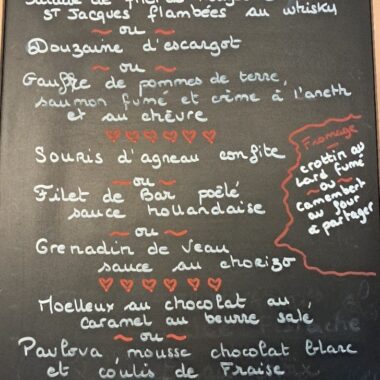 St Jacques flambées au whisky
ou
Douzaine d'escargot
ou
Gauffre de pommes de terre,
saumon fumé et crème à l'aneth
et au chèvre
Souris d'agneau confite
ou
Filet de Bar poêlé
sauce hollandaise
ou
Grenadin de Veau
sauce au chorizo
Moelleux au chocolat au
caramel au beurre salé
ou
Pavlova, mousse chocolat blanc
et coulis de Fraise
Fromage
crottin au
lard fumé
ou
camembert
au four
à partager